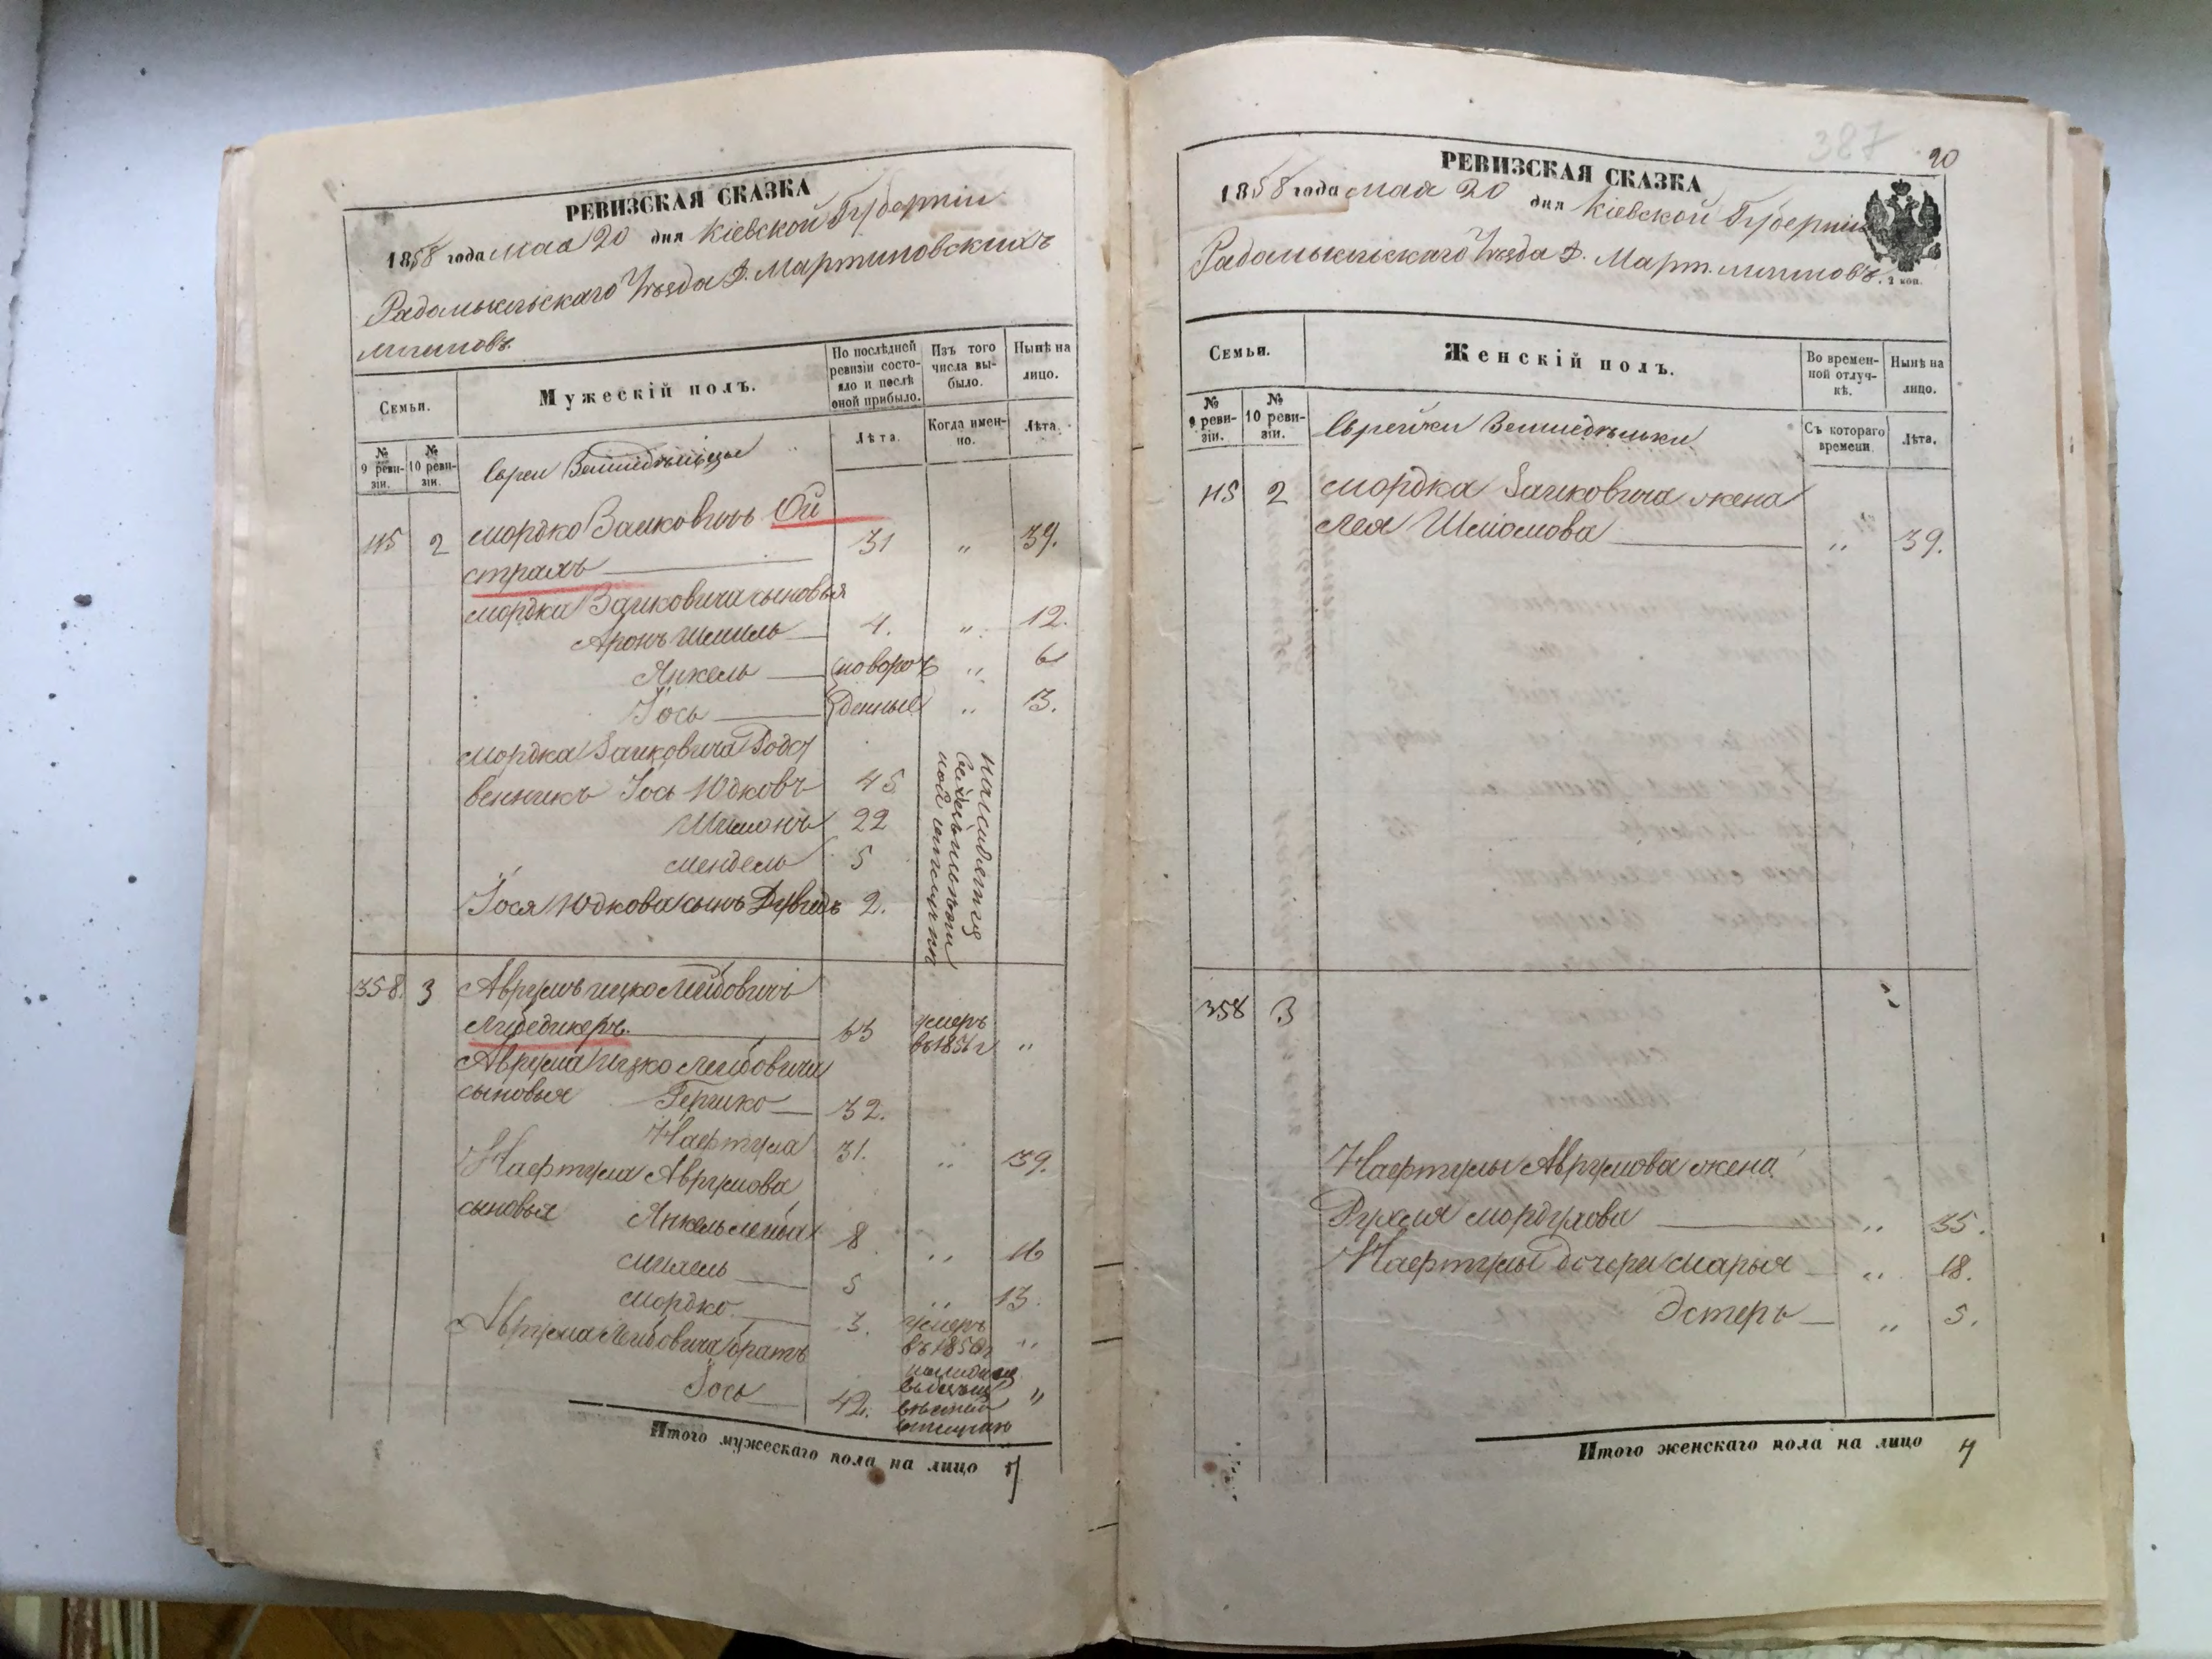 РЕВИЗСКАЯ СКАЗКА
1858 года мая 20 дня Кіевской Губерніи
Радомысльскаго Уезда Д. Мартиновскихъ
Семьи.
Мужескій полъ.
По послѣдней ревизіи состояло и послѣ оной прибыло.
Изъ того числа выбыло.
Нынѣ на лицо.
№ 9 ревизіи.
№ 10 ревизіи.
Лѣта.
Когда именно.
Лѣта.
Евреи Земледѣльцы
115 2 Мордко Ой
страхъ 31 " 39.
Мордка сыновья
Аронъ Шмиль 4. " 12.
Янкель новорож " 6
Іось денные " 13.
Мордка Родст
венникъ Іось Юдковъ 45
Шимонъ 22
Мендель 5
Іося Юдкова сынъ Дувидъ 2.
358. 3 Аврумъ Ицко Лейбовичъ
Либедикеръ. 63 умеръ
въ 1856 г "
Аврума Ицко Лейбовича
сыновья Гершко 32.
Нафтула 31. " 39.
Нафтула Аврумова
сыновья Янкель Лейба 8 " 16
Михель 5 " 13.
Мордко 3. умеръ
Аврума Лейбовича братъ
Іось 42. "
Итого мужескаго пола на лицо 7
387
20
РЕВИЗСКАЯ СКАЗКА
1858 года мая 20 дня Кіевской Губерніи
Радомысльскаго Уезда Д.
2 коп.
Семьи.
Женскій полъ.
Во временной отлучкѣ.
Нынѣ на лицо.
№ 9 ревизіи.
№ 10 ревизіи.
Съ котораго времени.
Лѣта.
Еврейки Земледѣльки
115 2 Мордка жена
Лея Шліомова " 39.
358 3
Нафтулы Аврумова жена
Рухля Мордухова " 35.
Нафтулы дочери Марья " 18.
Эстеръ " 5.
Итого женскаго пола на лицо 4